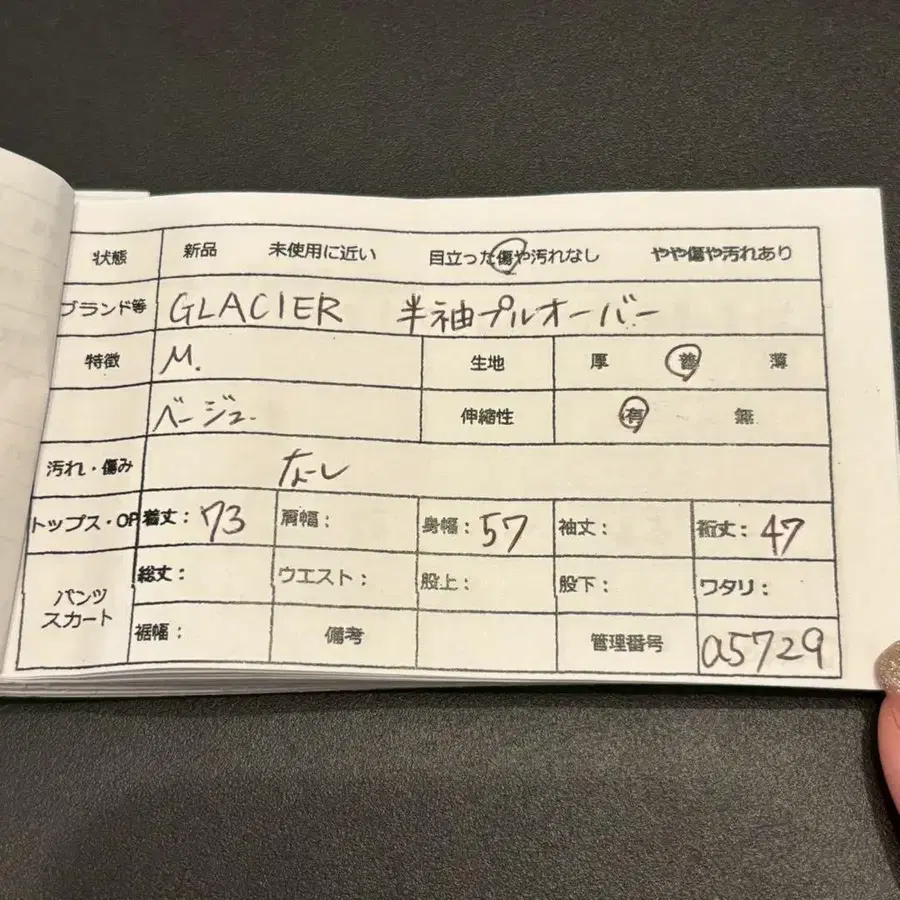 状態 新品 未使用に近い 目立った傷や汚れなし やや傷や汚れあり
ブランド等 GLACIER 半袖プルオーバー
特徴 M. 生地 厚 普 薄
ベージュ. 伸縮性 有 無
汚れ・傷み なし
トップス・OP 着丈：73 肩幅： 身幅：57 袖丈： 裄丈：47
パンツ スカート 総丈： ウエスト： 股上： 股下： ワタリ：
裾幅： 備考 管理番号 a5729